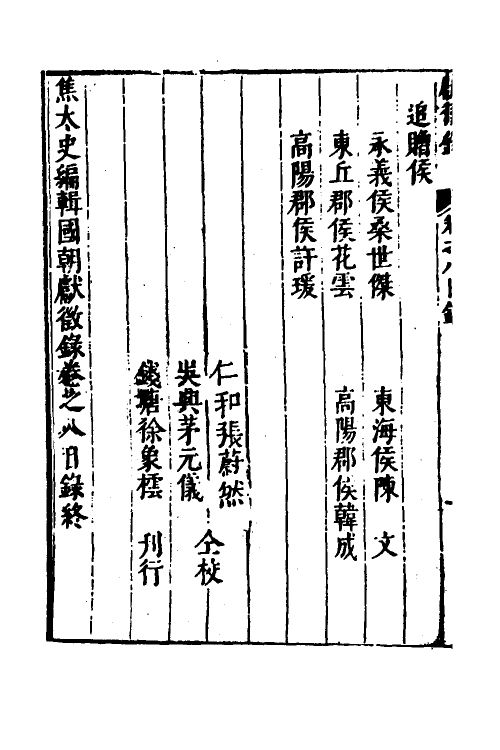 追贈侯
永義侯桑世傑
東海侯陳 文
東丘郡侯花雲
高陽郡侯韓成
高陽郡侯許瑗
仁和張蔚然
吳興茅元儀 仝校
錢塘徐象橒 刊行
焦太史編輯國朝獻徵錄卷之八目錄終